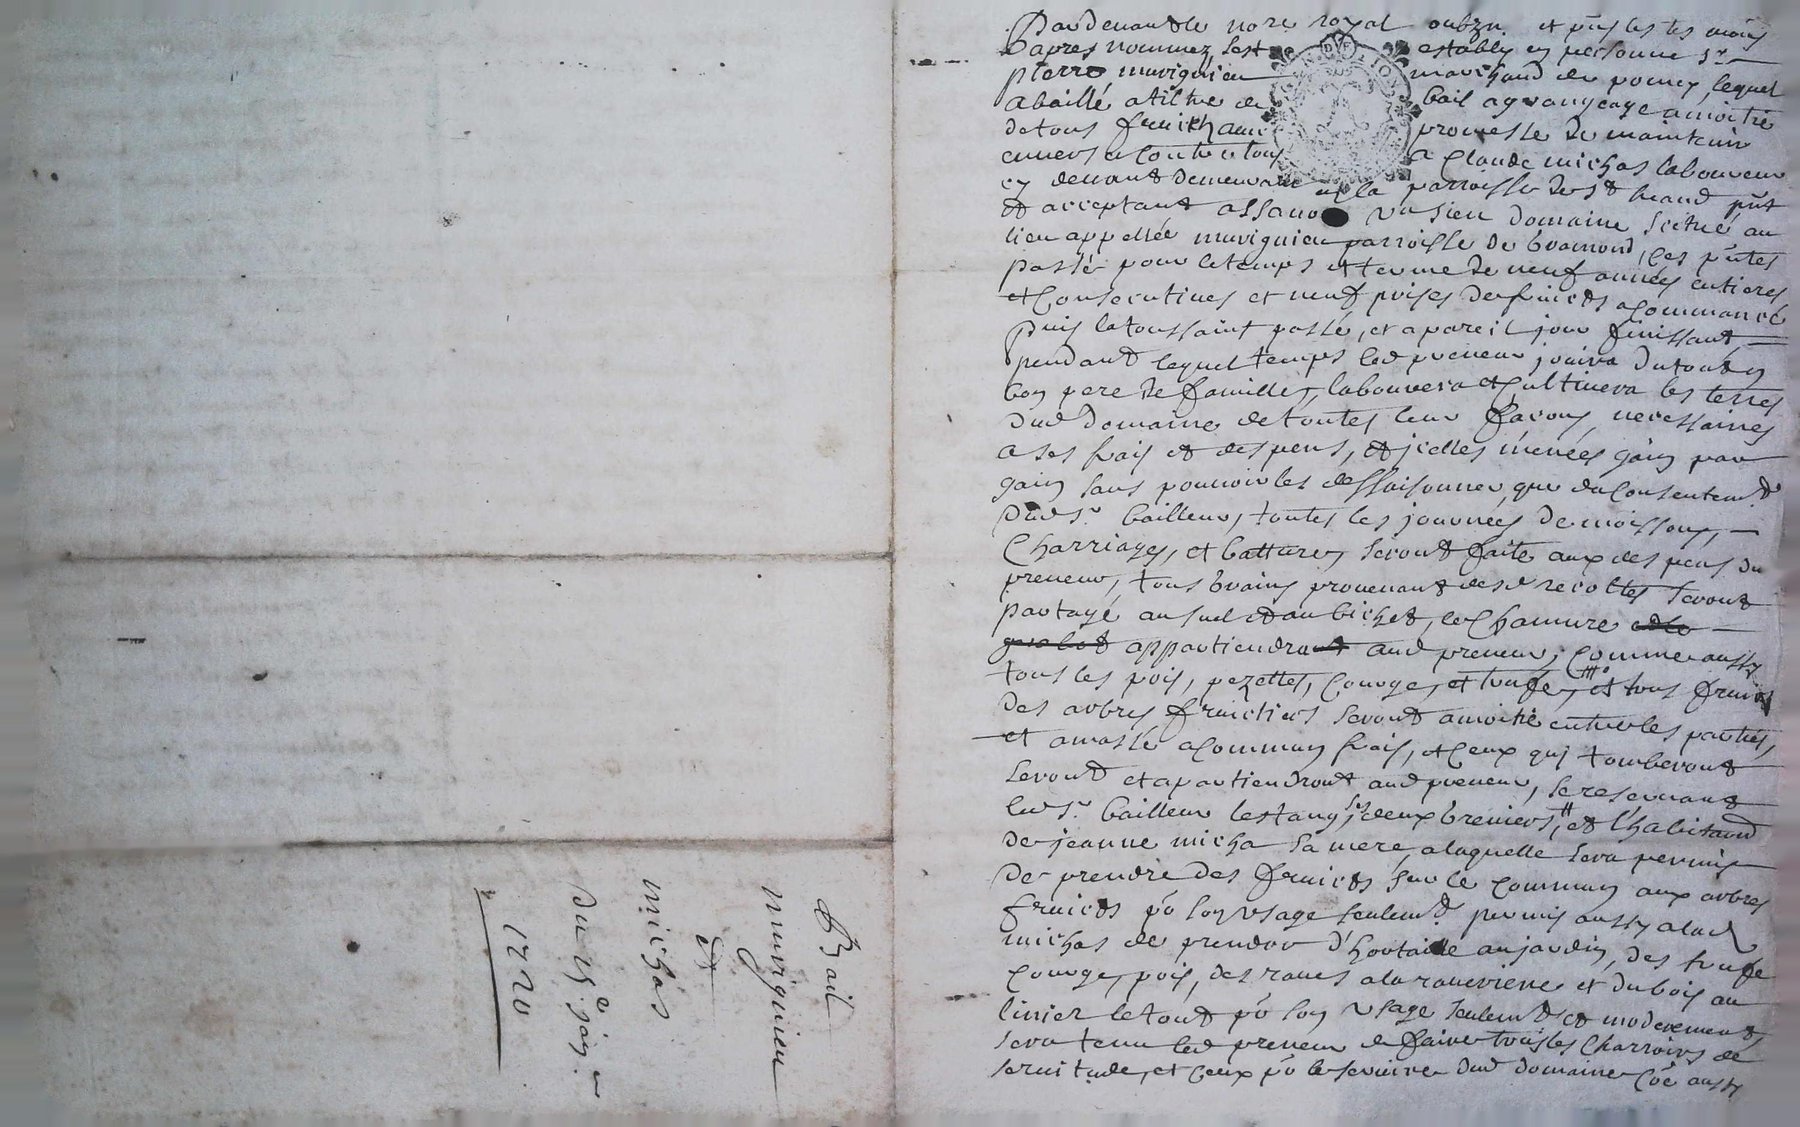 Bail
muviginieu
a
michas
du 25e janr
1720
Pardevant le nore royal soubzn. et pnts les tesmoins
bapres nommez, sest establÿ en personne sr
pierre muviginieu marchand de poncy, lequel
a baillé a tiltre de bail a grangeage a moitié
de tous fruicts avec promesse de maintenir
envers et contre tous a Claude michas laboureur
cy devant demeurant en la parroisse de st huand pnt
et acceptant assavoir un sien domaine scitué au
lieu appellée muviginieu parroisse de Gramond, ces pntes
passée pour le temps et terme de neuf années entieres
et Consecutives et neuf prises de fruicts a Commancé
puis la toussaint passé, et a pareil jour finissant,
pendant lequel temps led preneur jouira du tout en
bon pere de famille, labourera et Cultivera les terres
dud domaine de toutes leur facons, necessaires
a ses frais et despens, et jcelles menées gain par
gain sans pouvoir les dessaisonner que du Consentemt
dud sr bailleur, toutes les journées de moissons,
Charriages, et battures seront faite aux despens du
preneur, tous Grains provenant desd recoltes seront
partagé au suel et au bichet, le Chanvre et le
appartiendra aud preneur, Comme aussy
tous les pois, pezettes, Courge, et trufe, et tous fruicts
des arbres fruictiers seront a moitié entre les parties,
et amassé a Commun frais, et Ceux qui tomberont
seront et apartiendront aud preneur, se reservant
led sr bailleur lestang, deux Greniers, et lhabitaon
de jeanne micha sa mere, a laquelle sera permis
de prendre des fruicts sur le Commun aux arbres
fruicts po son usage seulemt permis aussy a lad
michas de prendre d'hortaille au jardin, des trufe
Courge, pois, des raves a la raveriere et du bois au
linier le tout po son usage seulemt et moderement,
sera tenu led preneur de faire tous les Charrois de
servitude, et Ceux po le service dud domaine Coe aussy